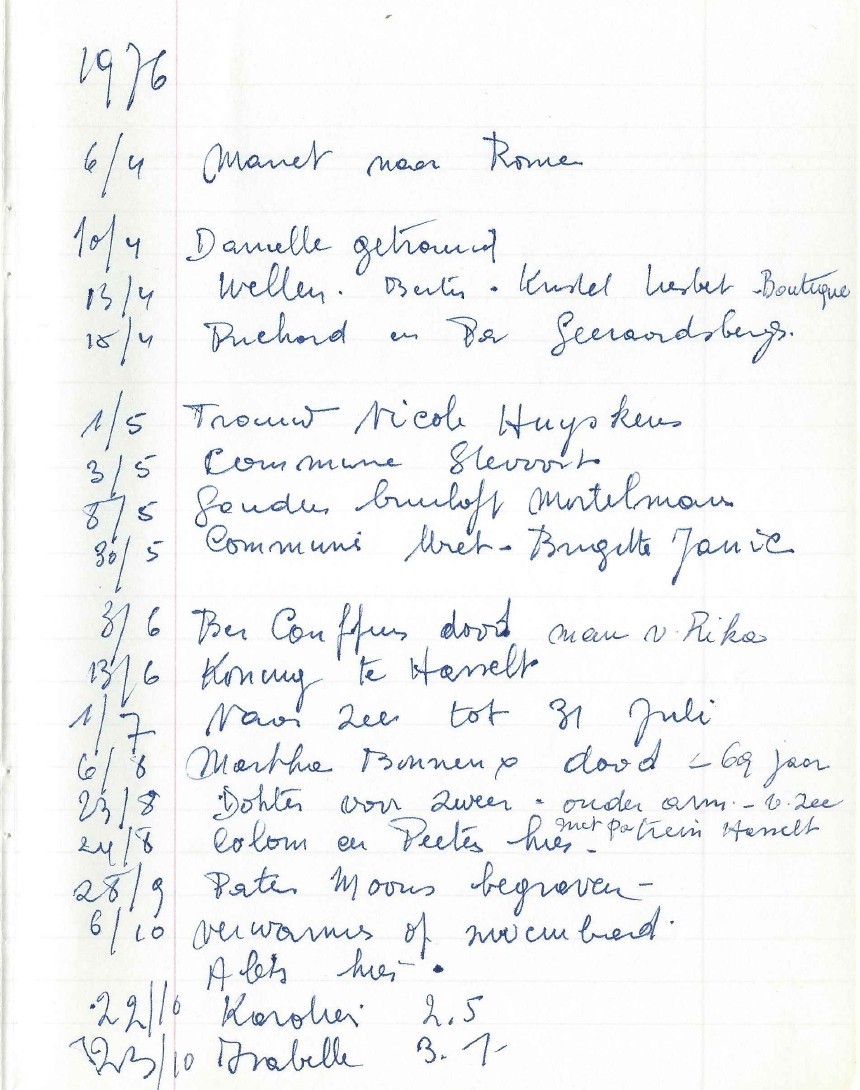 1976
6/4 Manet naar Rome
10/4 Danielle getrouwd
13/4 Wellen. Bertis. Kristel herbet - Boutique
15/4 Richard en Pa Geeraardsbergs.
1/5 Trouw Nicole Huyskens
3/5 Commune Stevoort
8/5 Gouden bruiloft Mortelmans
30/5 Communi Uret - Brigitte Janic
3/6 dood man v. Rika
13/6 Koning te Hasselt
1/7 Naar zee tot 31 Juli
6/8 Martha Bonneux dood - 69 jaar
23/8 Dokter voor zweer. onder arm - v. zee
met Pa trein Hasselt
24/8 Colom en Peeters hier -
28/9 Pater Moons begraven -
6/10 verwarmer of
hier.
22/10 2.5
23/10 Isabelle 3.1